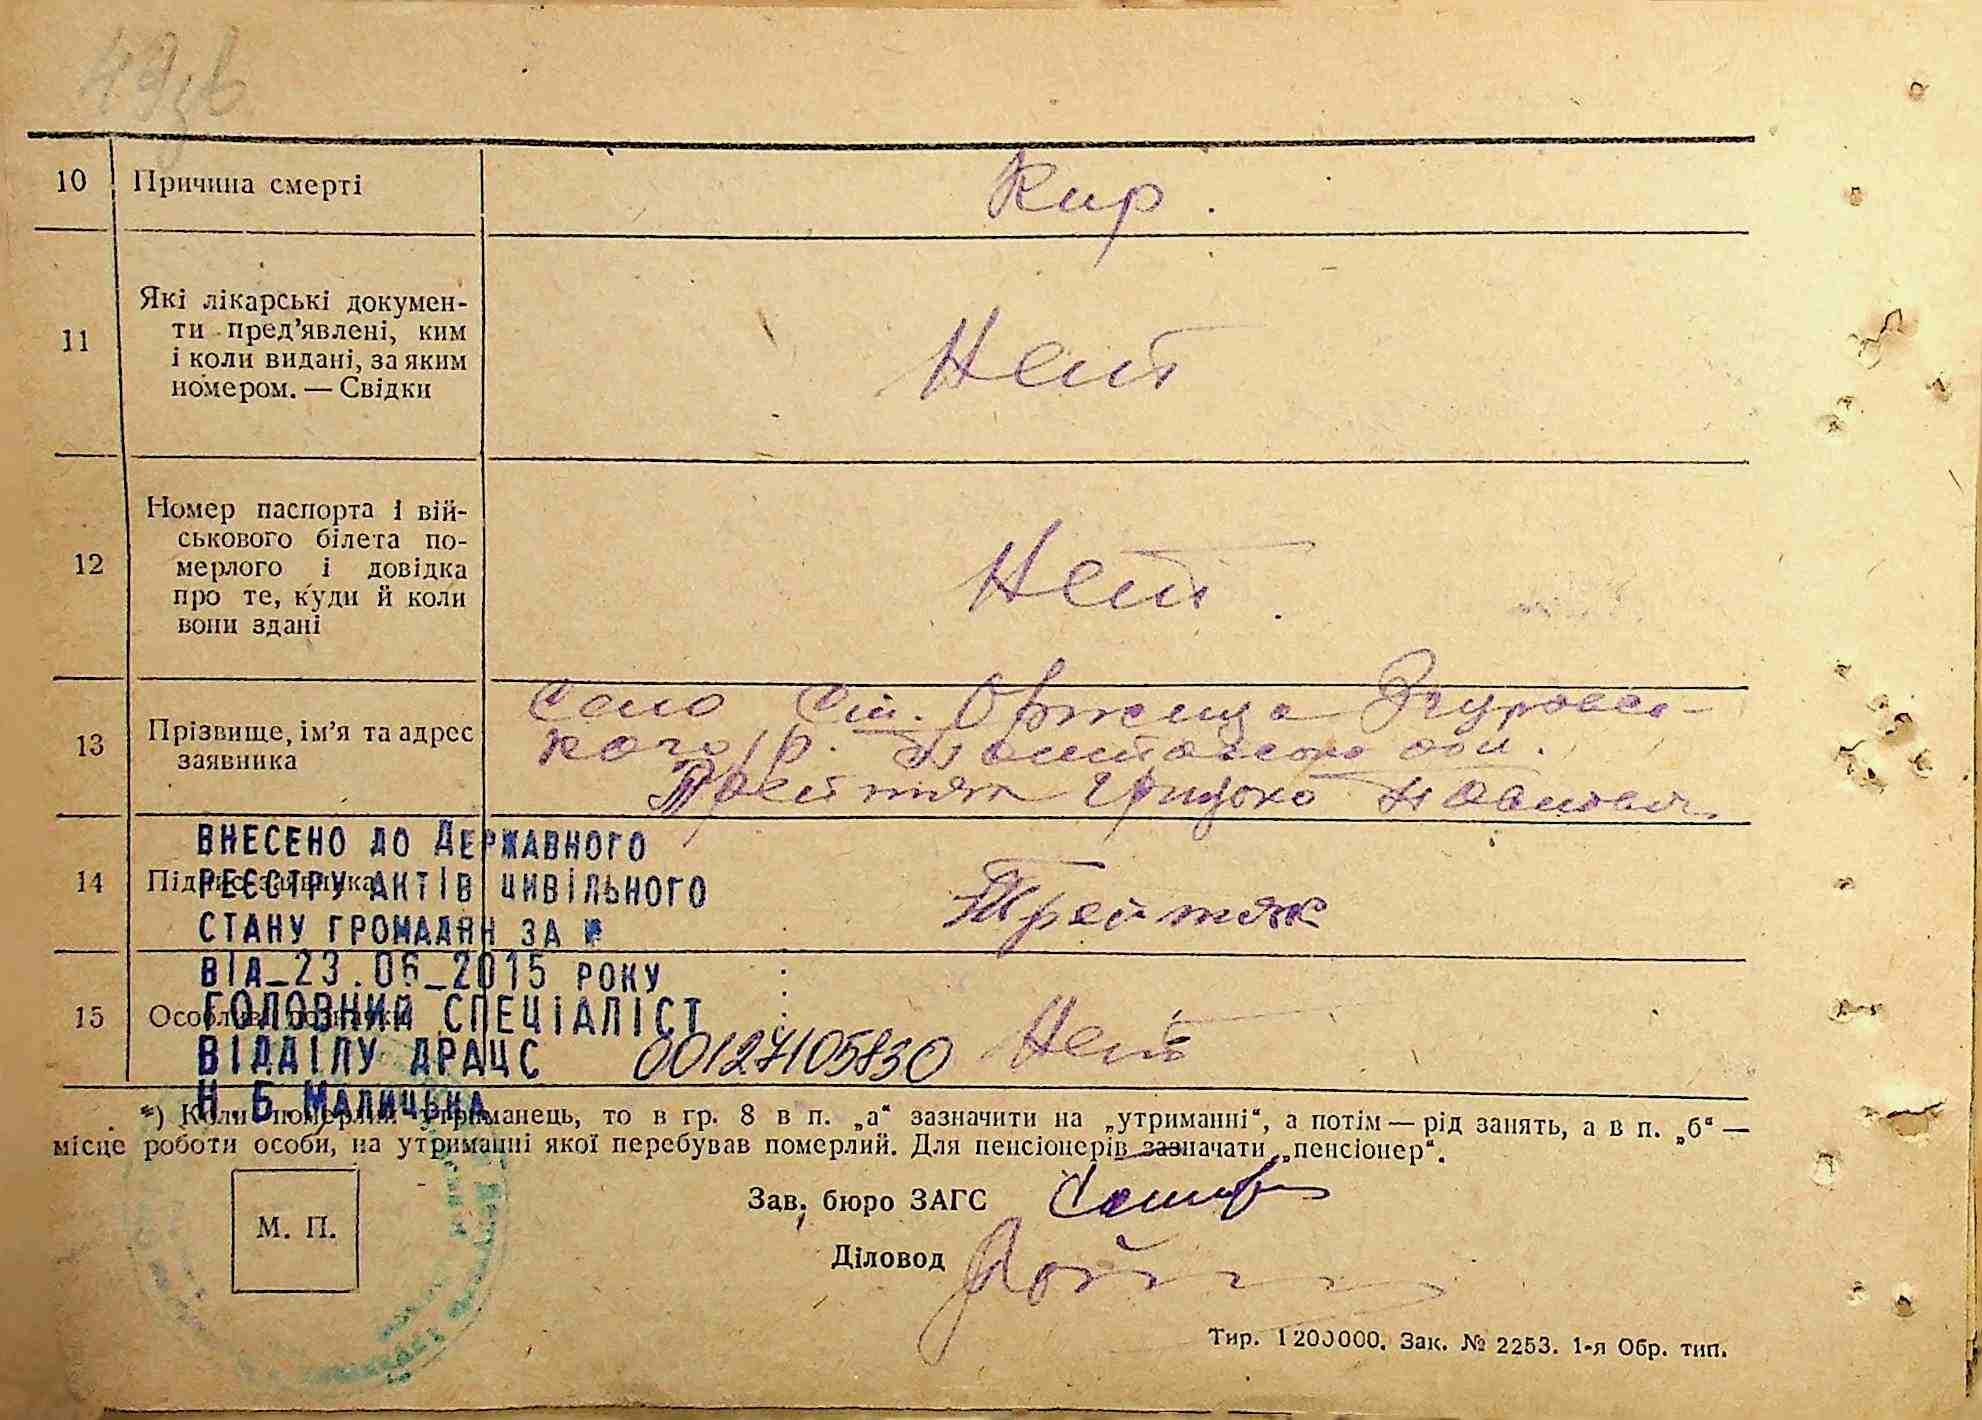 10 Причина смерті
Кир.
11 Які лікарські докумен-
ти пред'явлені, ким
і коли видані, за яким
номером. — Свідки
Нет
12 Номер паспорта і вій-
ськового білета по-
мерлого і довідка
про те, куди й коли
вони здані
Нет.
13 Прізвище, ім'я та адрес
заявника
село Ст. Оржица Згуровс-
кого р. Полтавской обл.
Грицко Павлович
14 Підпис заявника
15 Особливі
Нет
ВНЕСЕНО ДО ДЕРЖАВНОГО
РЕЄСТРУ АКТІВ ЦИВІЛЬНОГО
СТАНУ ГРОМАДЯН ЗА №
ВІД_23.06_2015 РОКУ
ГОЛОВНИЙ СПЕЦІАЛІСТ
ВІДДІЛУ ДРАЦС 00127105830
Н.Б.МАЛИЦЬКА
*) Коли померлий утриманець, то в гр. 8 в п. „а“ зазначити на „утриманні“, а потім — рід занять, а в п. „б“ —
місце роботи особи, на утриманні якої перебував померлий. Для пенсіонерів зазначати „пенсіонер“.
М. П.
Зав. бюро ЗАГС
Діловод
Тир. 1200000. Зак. № 2253. 1-я Обр. тип.